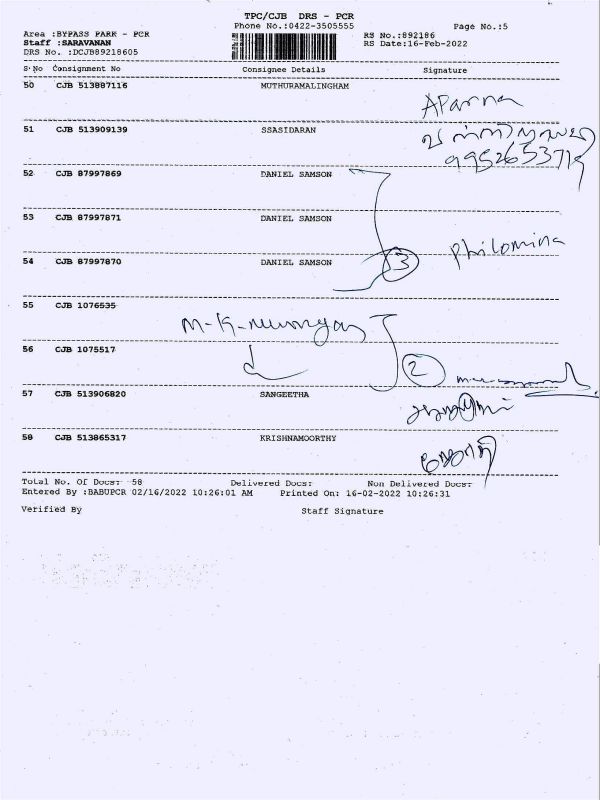 TPC/CJB DRS - PCR
Phone No.:0422-3505555
Page No.:5
Area :BYPASS PARK - PCR
RS No.:892186
Staff :SARAVANAN
RS Date:16-Feb-2022
DRS No. :DCJB89218605
S.No Consignment No Consignee Details Signature
50 CJB 513887116 MUTHURAMALINGHAM
Aparna
51 CJB 513909139 SSASIDARAN
9952653719
52 CJB 87997869 DANIEL SAMSON
53 CJB 87997871 DANIEL SAMSON
Philomina
54 CJB 87997870 DANIEL SAMSON
3
55 CJB 1076535
56 CJB 1075517
2
57 CJB 513906820 SANGEETHA
58 CJB 513865317 KRISHNAMOORTHY
Total No. Of Docs: 58 Delivered Docs: Non Delivered Docs:
Entered By :BABUPCR 02/16/2022 10:26:01 AM Printed On: 16-02-2022 10:26:31
Verified By Staff Signature